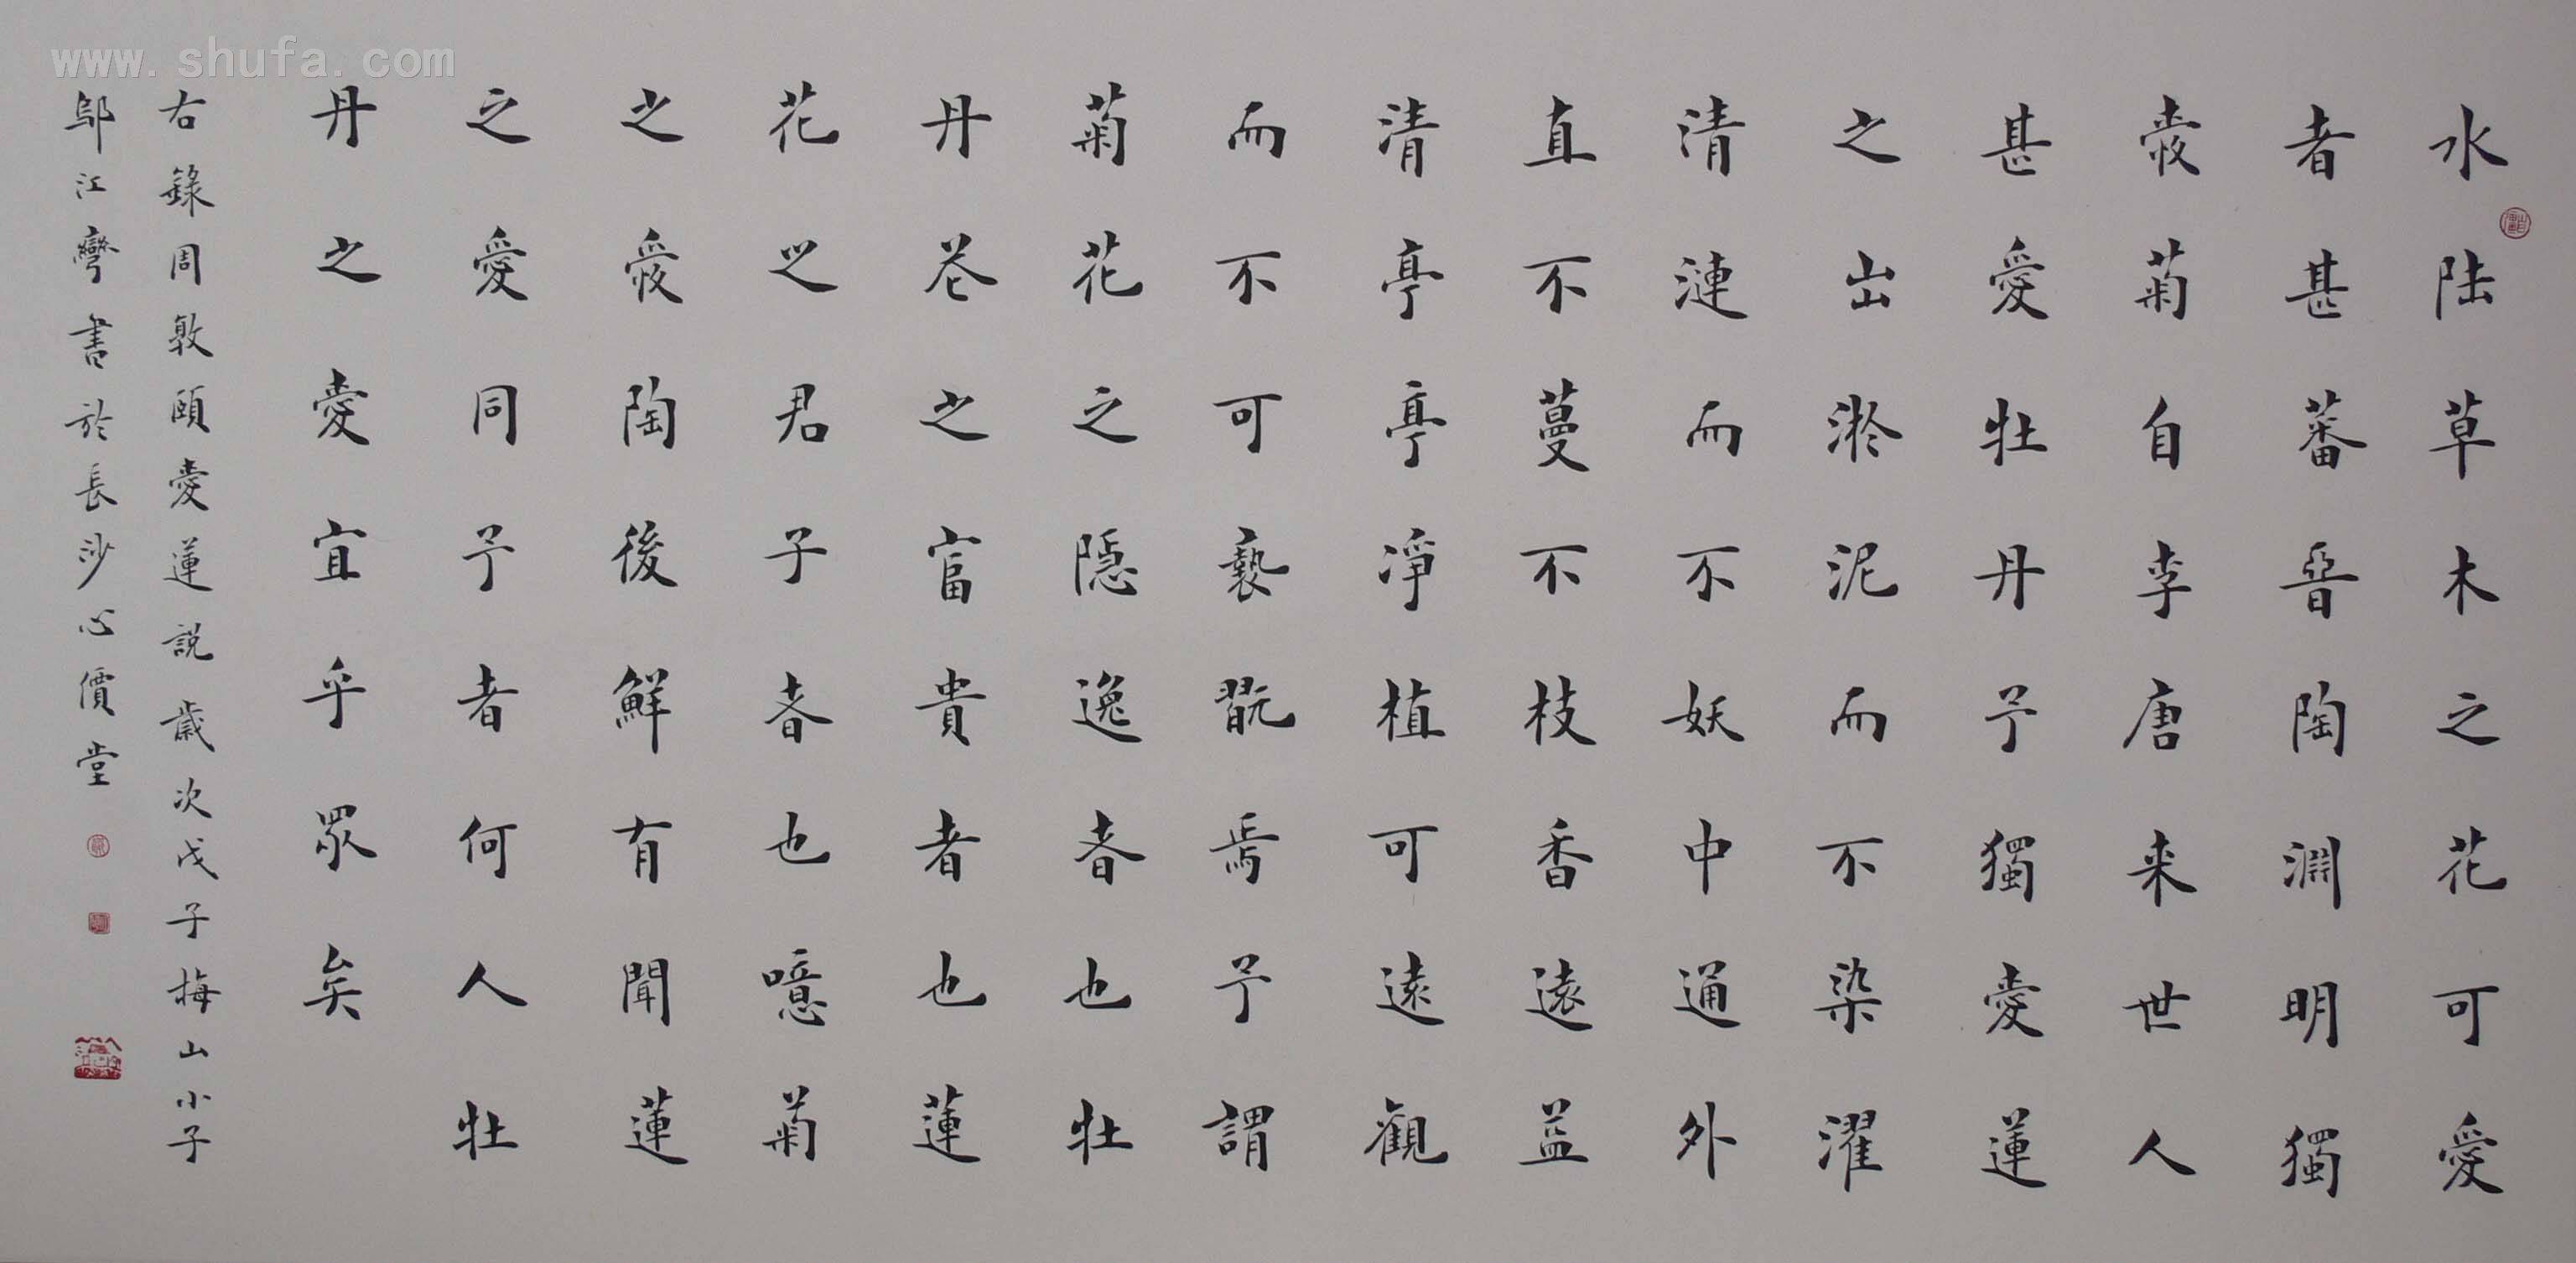 www.shufa.com
水陸草木之花可愛
者甚蕃晉陶淵明獨
愛菊自李唐来世人
甚愛牡丹予獨愛蓮
之出淤泥而不染濯
清漣而不妖中通外
直不蔓不枝香遠益
清亭亭淨植可遠觀
而不可褻翫焉予謂
菊花之隱逸者也牡
丹花之富貴者也蓮
花之君子者也噫菊
之愛陶後鮮有聞蓮
之愛同予者何人牡
丹之愛宜乎眾矣
右錄周敦頤愛蓮說歲次戊子梅山小子
鄔江彎書於長沙心價堂